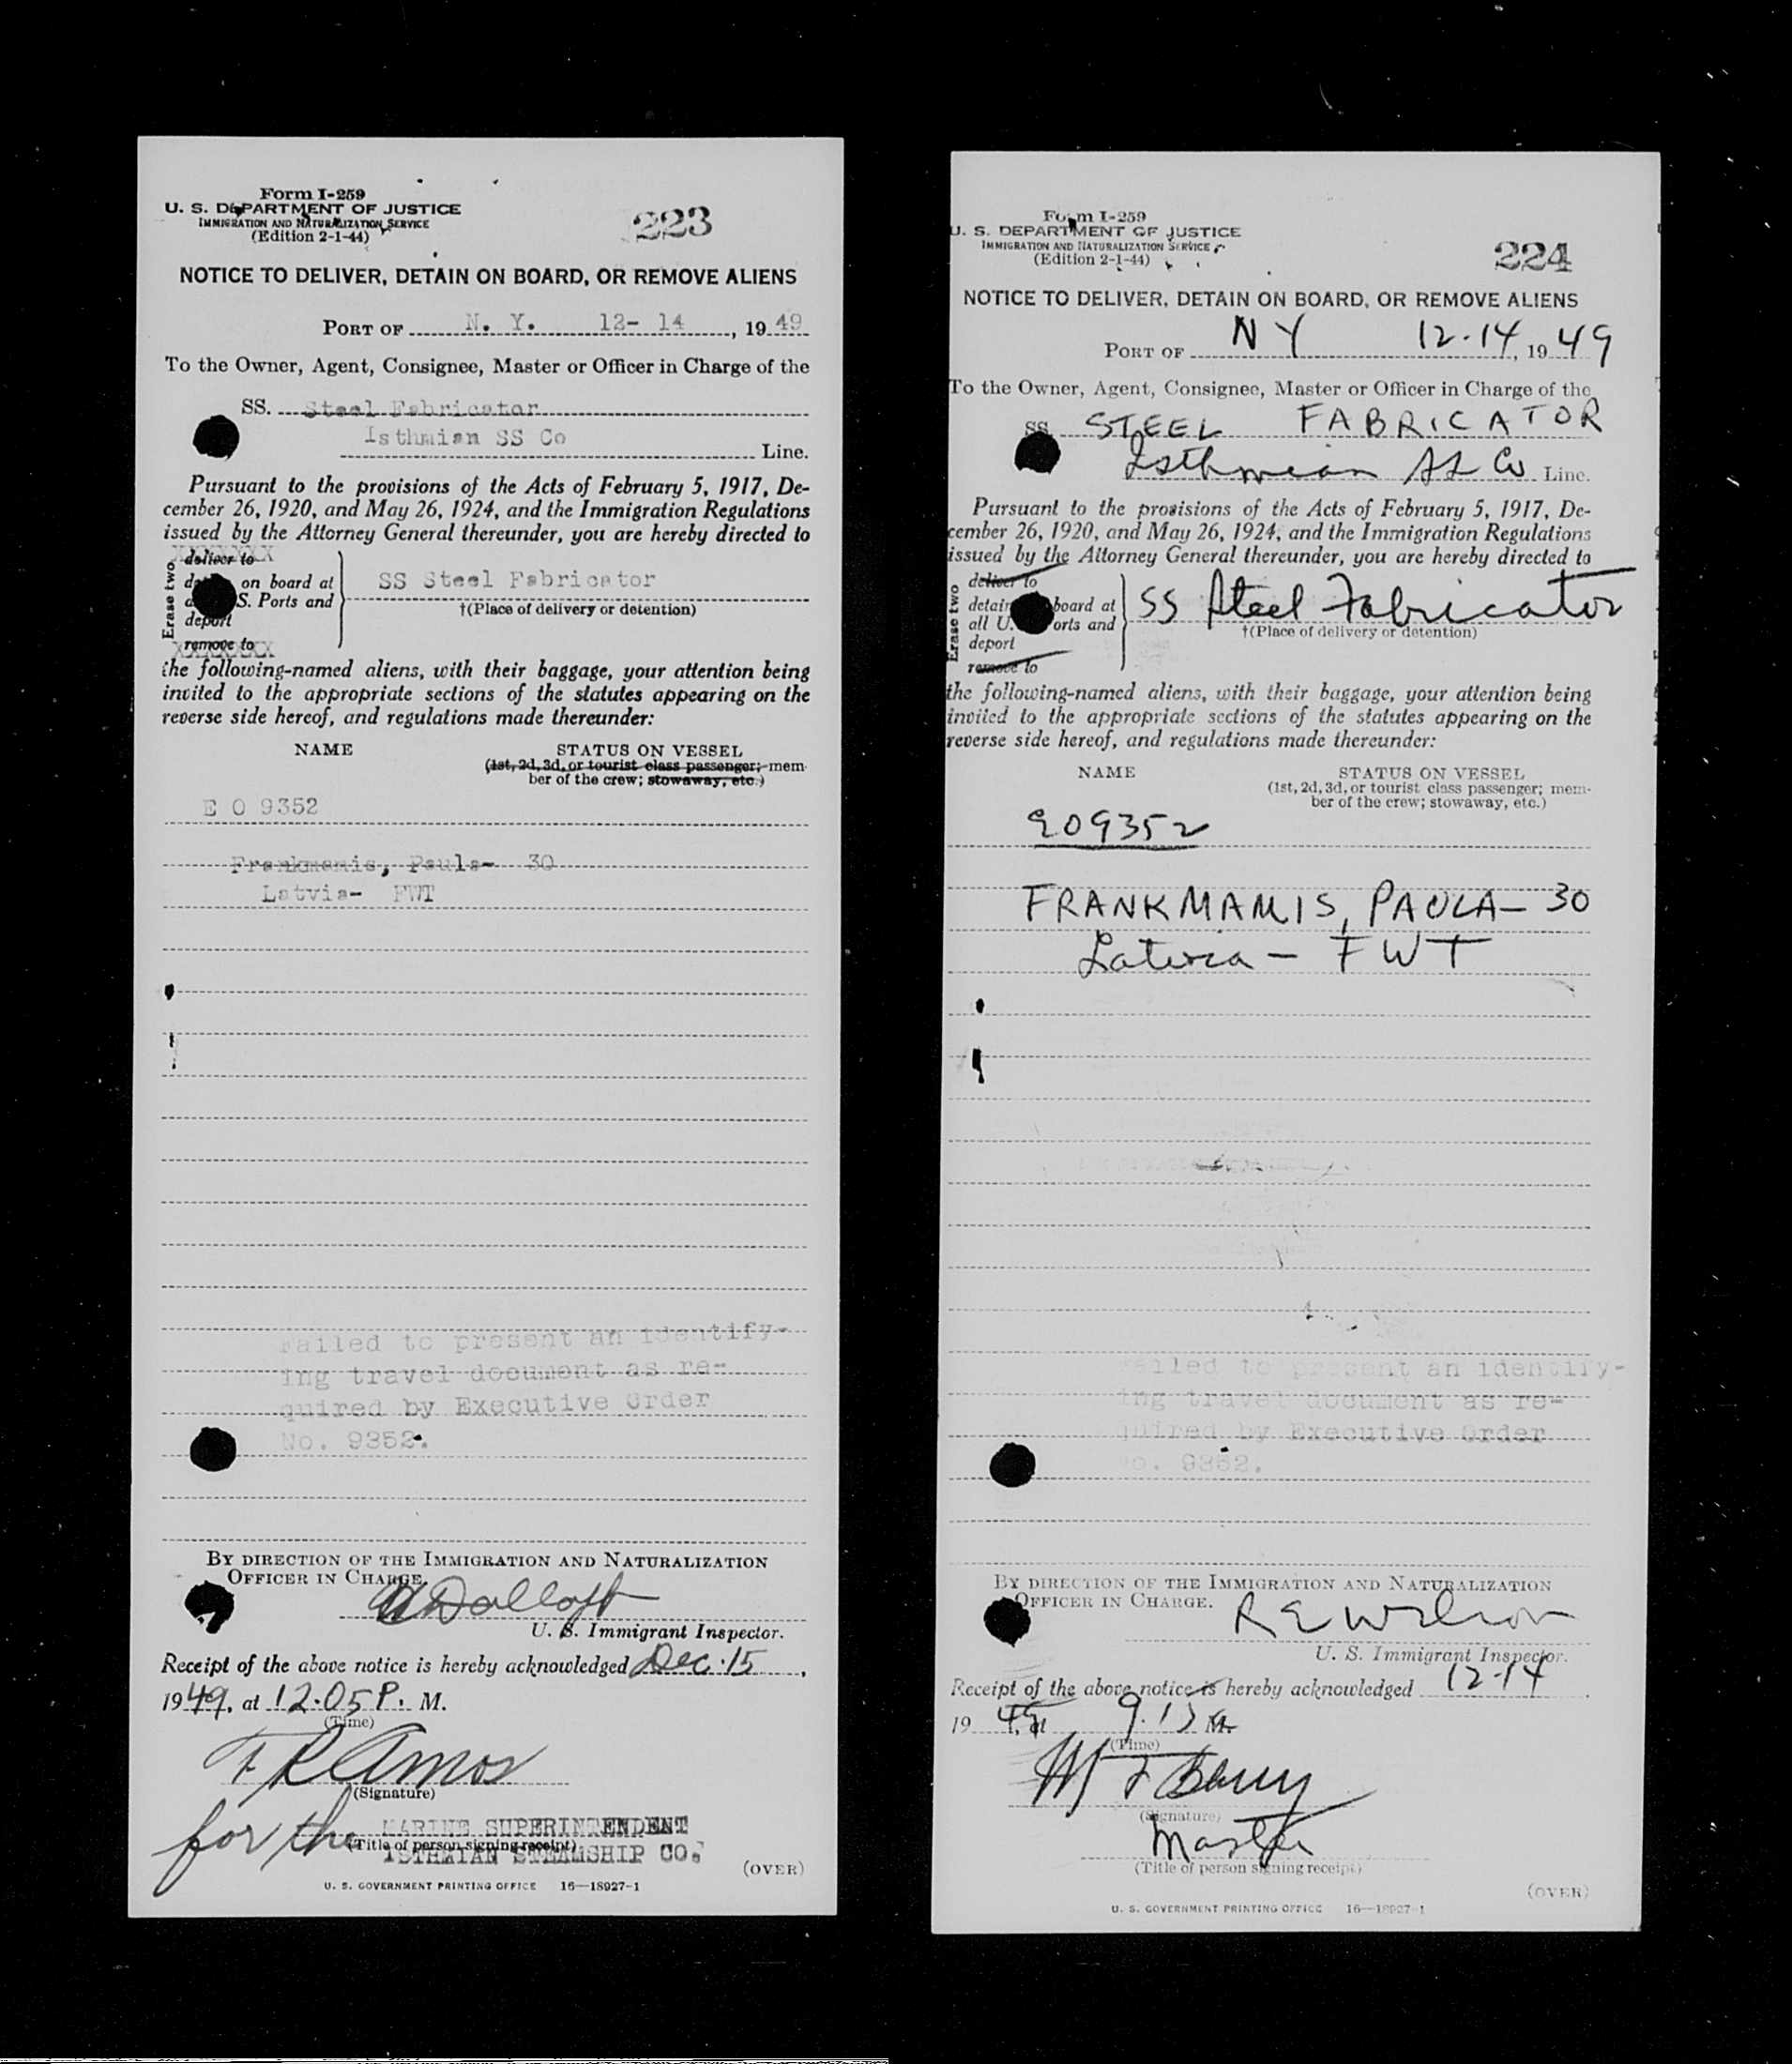 Form I-259
U. S. DEPARTMENT OF JUSTICE
IMMIGRATION AND NATURALIZATION SERVICE
(Edition 2-1-44)
223
NOTICE TO DELIVER, DETAIN ON BOARD, OR REMOVE ALIENS
PORT OF N. Y. 12- 14, 1949
To the Owner, Agent, Consignee, Master or Officer in Charge of the
SS. Steel Fabricator
Isthmian SS Co Line.
Pursuant to the provisions of the Acts of February 5, 1917, De-
cember 26, 1920, and May 26, 1924, and the Immigration Regulations
issued by the Attorney General thereunder, you are hereby directed to
Erase two
deliver to
on board at
S. Ports and
deport
remove to
SS Steel Fabricator
†(Place of delivery or detention)
the following-named aliens, with their baggage, your attention being
invited to the appropriate sections of the statutes appearing on the
reverse side hereof, and regulations made thereunder:
NAME STATUS ON VESSEL
(1st, 2d, 3d, or tourist class passenger; mem-
ber of the crew; stowaway, etc.)
E O 9352
Frankmanis, Paula- 30
Latvia- FWT
Failed to present an identify-
ing travel document as re-
quired by Executive Order
No. 9352.
BY DIRECTION OF THE IMMIGRATION AND NATURALIZATION
OFFICER IN CHARGE.
U. S. Immigrant Inspector.
Receipt of the above notice is hereby acknowledged Dec. 15,
1949, at 12.05 P. M.
(Time)
F R Amos
(Signature)
for the MARINE SUPERINTENDENT
(Title of person signing receipt)
ISTHMIAN STEAMSHIP CO.
(OVER)
U. S. GOVERNMENT PRINTING OFFICE 16—18927-1
Form I-259
U. S. DEPARTMENT OF JUSTICE
IMMIGRATION AND NATURALIZATION SERVICE
(Edition 2-1-44)
224
NOTICE TO DELIVER, DETAIN ON BOARD, OR REMOVE ALIENS
PORT OF NY 12-14, 1949
To the Owner, Agent, Consignee, Master or Officer in Charge of the
SS. STEEL FABRICATOR
Isthmian SS Co Line.
Pursuant to the provisions of the Acts of February 5, 1917, De-
cember 26, 1920, and May 26, 1924, and the Immigration Regulations
issued by the Attorney General thereunder, you are hereby directed to
Erase two
deliver to
detain board at
all U. orts and
deport
remove to
SS Steel Fabricator
†(Place of delivery or detention)
the following-named aliens, with their baggage, your attention being
invited to the appropriate sections of the statutes appearing on the
reverse side hereof, and regulations made thereunder:
NAME STATUS ON VESSEL
(1st, 2d, 3d, or tourist class passenger; mem-
ber of the crew; stowaway, etc.)
EO9352
FRANKMANIS, PAULA- 30
Latvia - FWT
Failed to present an identify-
ing travel document as re-
quired by Executive Order
No. 9352.
BY DIRECTION OF THE IMMIGRATION AND NATURALIZATION
OFFICER IN CHARGE.
R E Wilson
U. S. Immigrant Inspector.
Receipt of the above notice is hereby acknowledged 12-14,
1949, at 9.15 M.
(Time)
(Signature)
Master
(Title of person signing receipt)
(OVER)
U. S. GOVERNMENT PRINTING OFFICE 16—18927-1